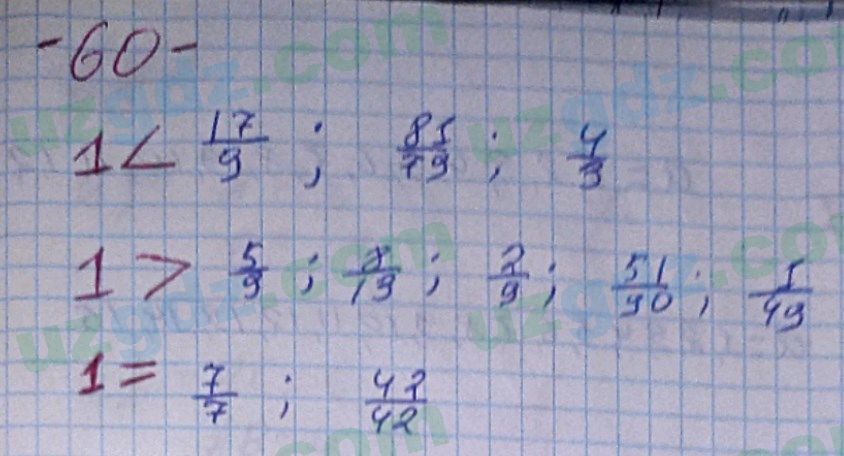 -60-
1 < 17/9 ; 85/79 ; 4/3
1 > 5/9 ; 8/19 ; 2/9 ; 51/90 ; 5/49
1 = 7/7 ; 42/42
uzgdz.com